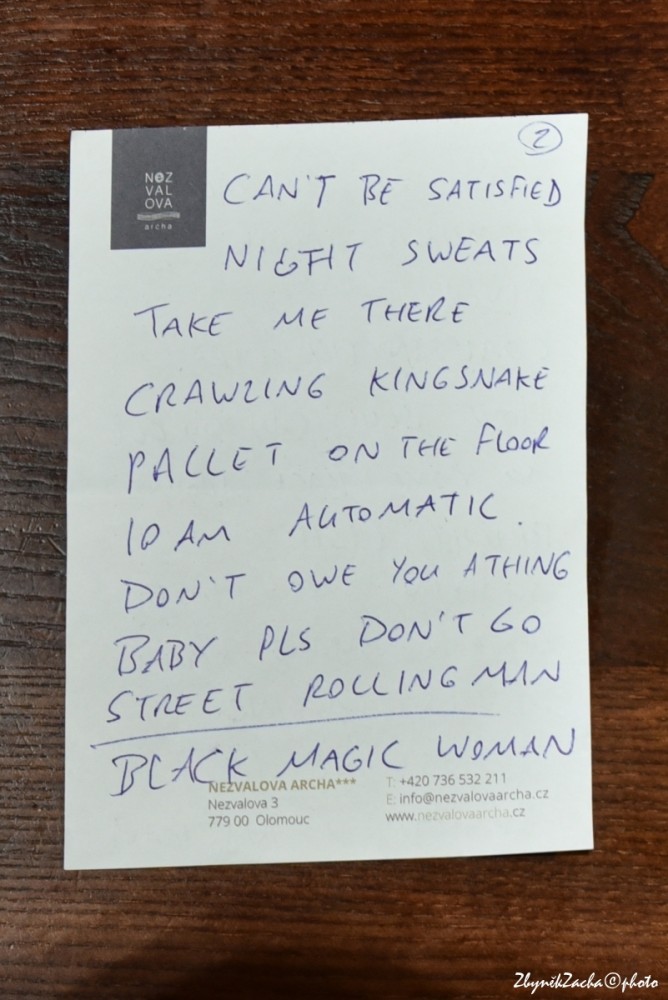 2
NEZ
VAL
OVA
archa
CAN'T BE SATISFIED
NIGHT SWEATS
TAKE ME THERE
CRAWLING KINGSNAKE
PALLET ON THE FLOOR
10 AM AUTOMATIC.
DON'T OWE YOU A THING
BABY PLS DON'T GO
STREET ROLLING MAN
BLACK MAGIC WOMAN
NEZVALOVA ARCHA***
Nezvalova 3
779 00 Olomouc
T: +420 736 532 211
E: info@nezvalovaarcha.cz
www.nezvalovaarcha.cz
ZbyněkZacha©photo